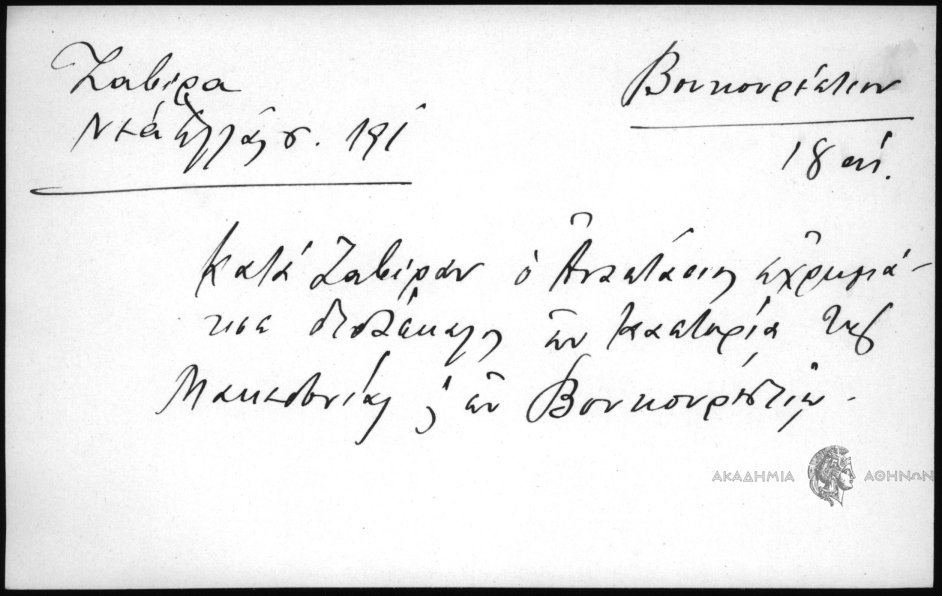 Ζαβίρα
Νέα Ἑλλάς σ. 191
Βουκουρέστιον
18 αἰ.
Κατά Ζαβίραν ὁ Ἀναστάσιος ἐχρημά-
τισε διδάσκαλος ἐν Καστορίᾳ τῆς
Μακεδονίας ἐν Βουκουρεστίῳ.
ΑΚΑΔΗΜΙΑ ΑΘΗΝΩΝ